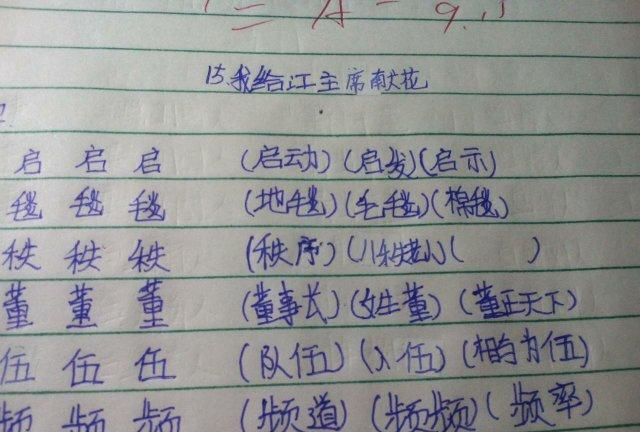 = A- 9.
15.我给江主席献花
启 启 启 (启动)(启发)(启示)
毯 毯 毯 (地毯)(毛毯)(棉毯)
秩 秩 秩 (秩序)( )( )
董 董 董 (董事长)(姓董)(董正天下)
伍 伍 伍 (队伍)(入伍)(相与为伍)
频 频 频 (频道)(频频)(频率)